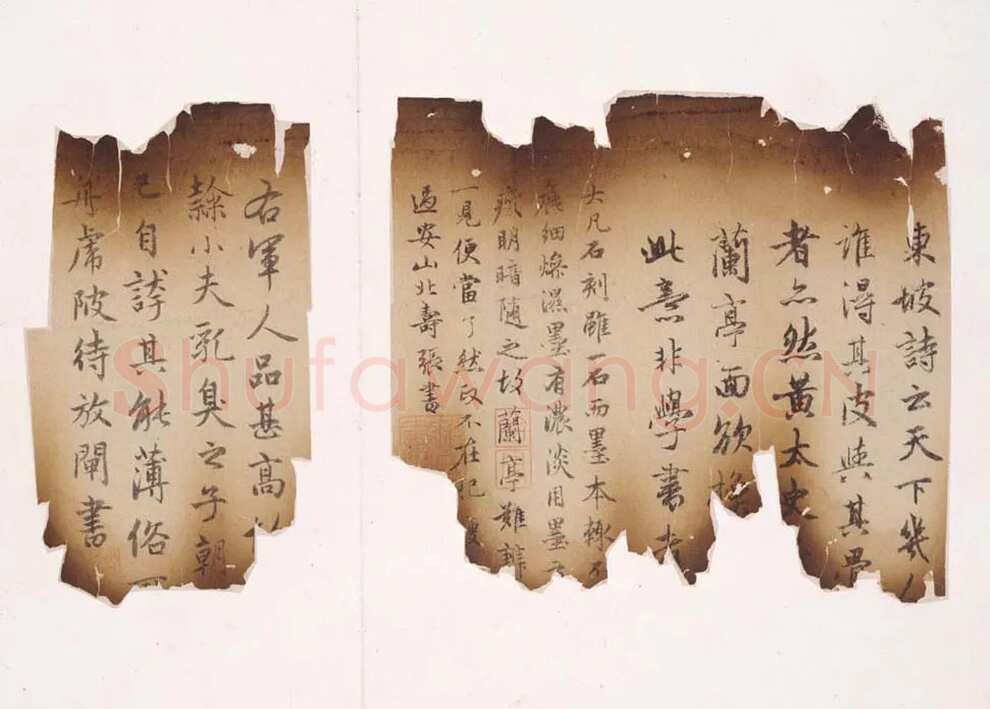 東坡詩云天下幾人
誰得其皮與其骨
者亦然黃太史
蘭亭面欲換
此意非學書者
大凡石刻雖一石而墨本輒不
麤細燥濕墨有濃淡用墨有
瘦明暗隨之故蘭亭難辨
一見便當了然政不在肥瘦
過安山北壽張書
右軍人品甚高故
隸小夫乳臭之子朝
已自誇其能薄俗可
舟虎陂待放閘書
Shufawang.CN